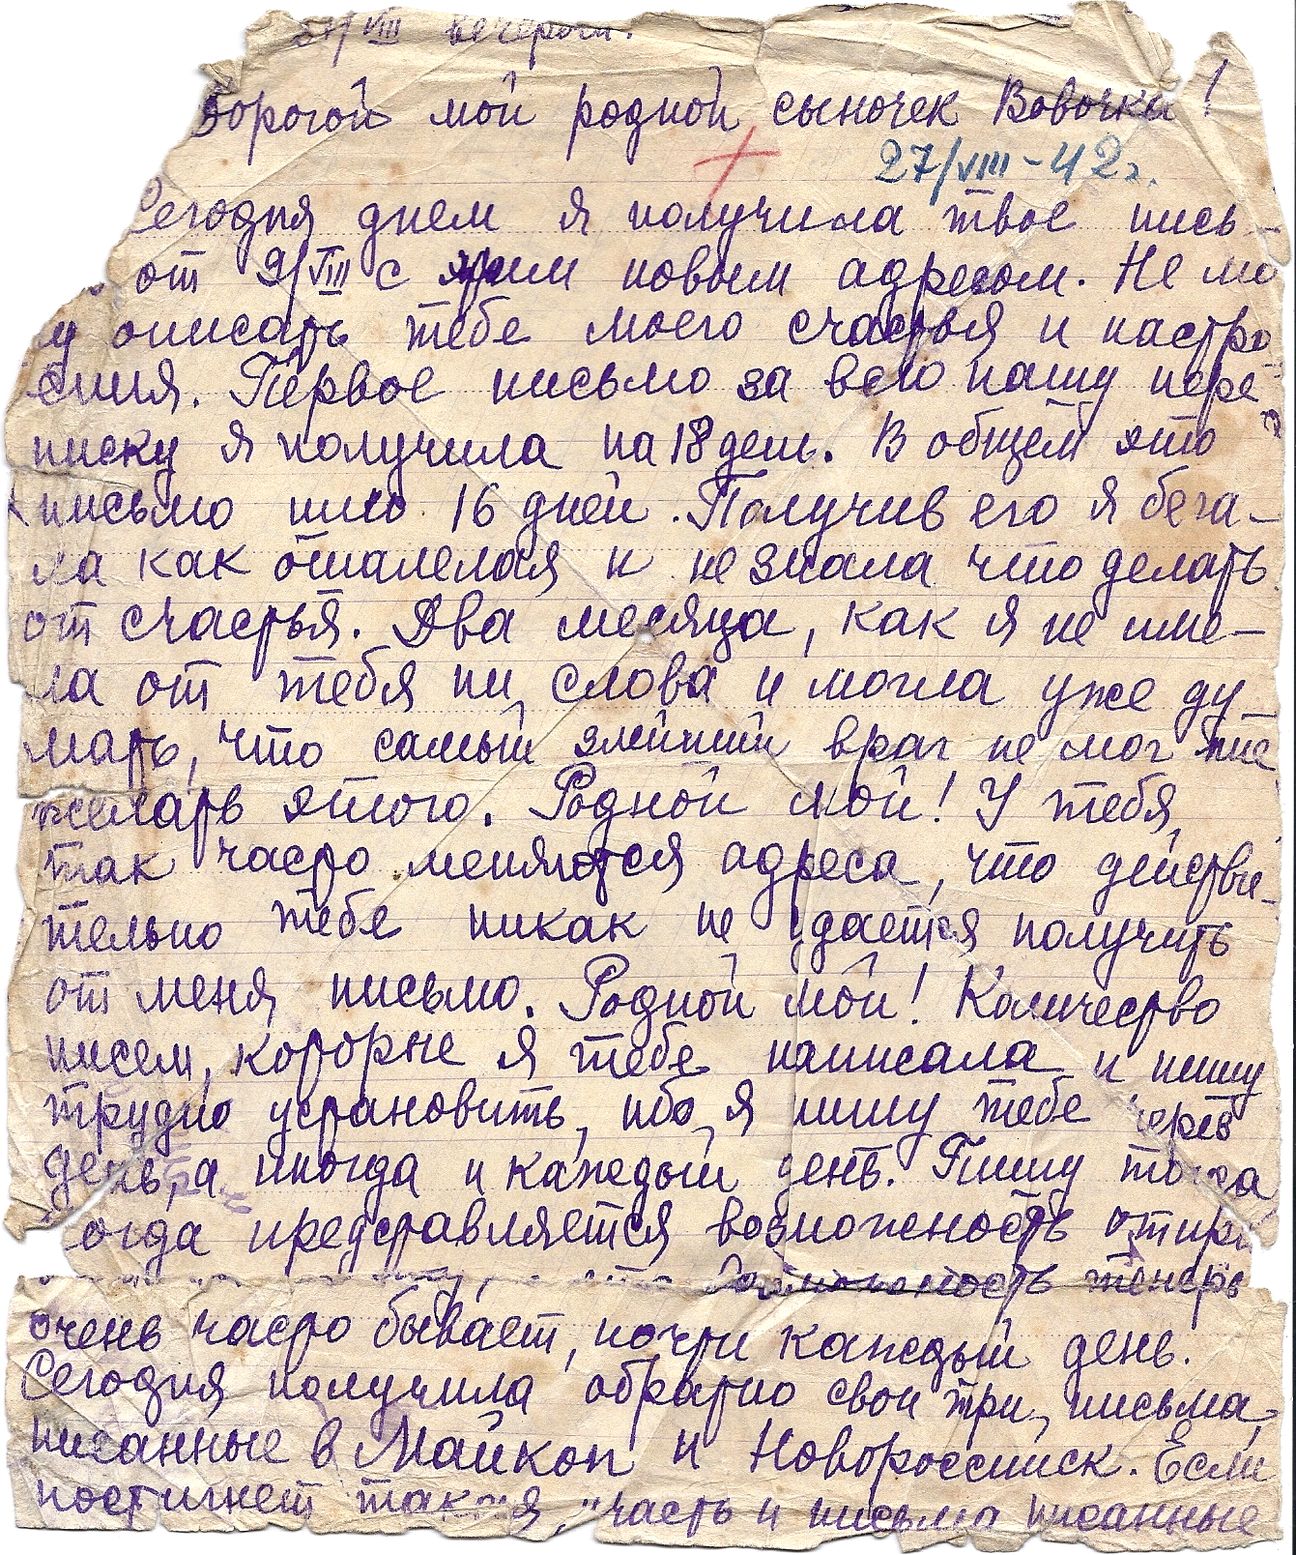 /VIII вечером.
Дорогой мой родной сыночек Вовочка!
27/VIII-42г.
Сегодня днем я получила твое пись-
от 9/VIII с твоим новым адресом. Не мо
у описать тебе моего счастья и настро
ения. Первое письмо за всю нашу пере-
писку я получила на 18 день. В общем это
письмо шло 16 дней. Получив его я бега-
ла как ошалелая и не знала что делать
от счастья. Два месяца, как я не име-
ла от тебя ни слова и могла уже ду
мать, что самый злейший враг не мог мне
желать этого. Родной мой! У тебя
так часто меняются адреса, что действи-
тельно тебе никак не удается получить
от меня письмо. Родной мой! Количество
писем, которые я тебе написала и пишу
трудно установить, ибо я пишу тебе через
день, а иногда и каждый день. Пишу тогда
когда представляется возможеность отпра
возможеность теперь
очень часто бывает, почти каждый день.
Сегодня получила обратно свои три письма,
писанные в Майкоп и Новороссийск. Если
постигнет такая участь и письма писанные